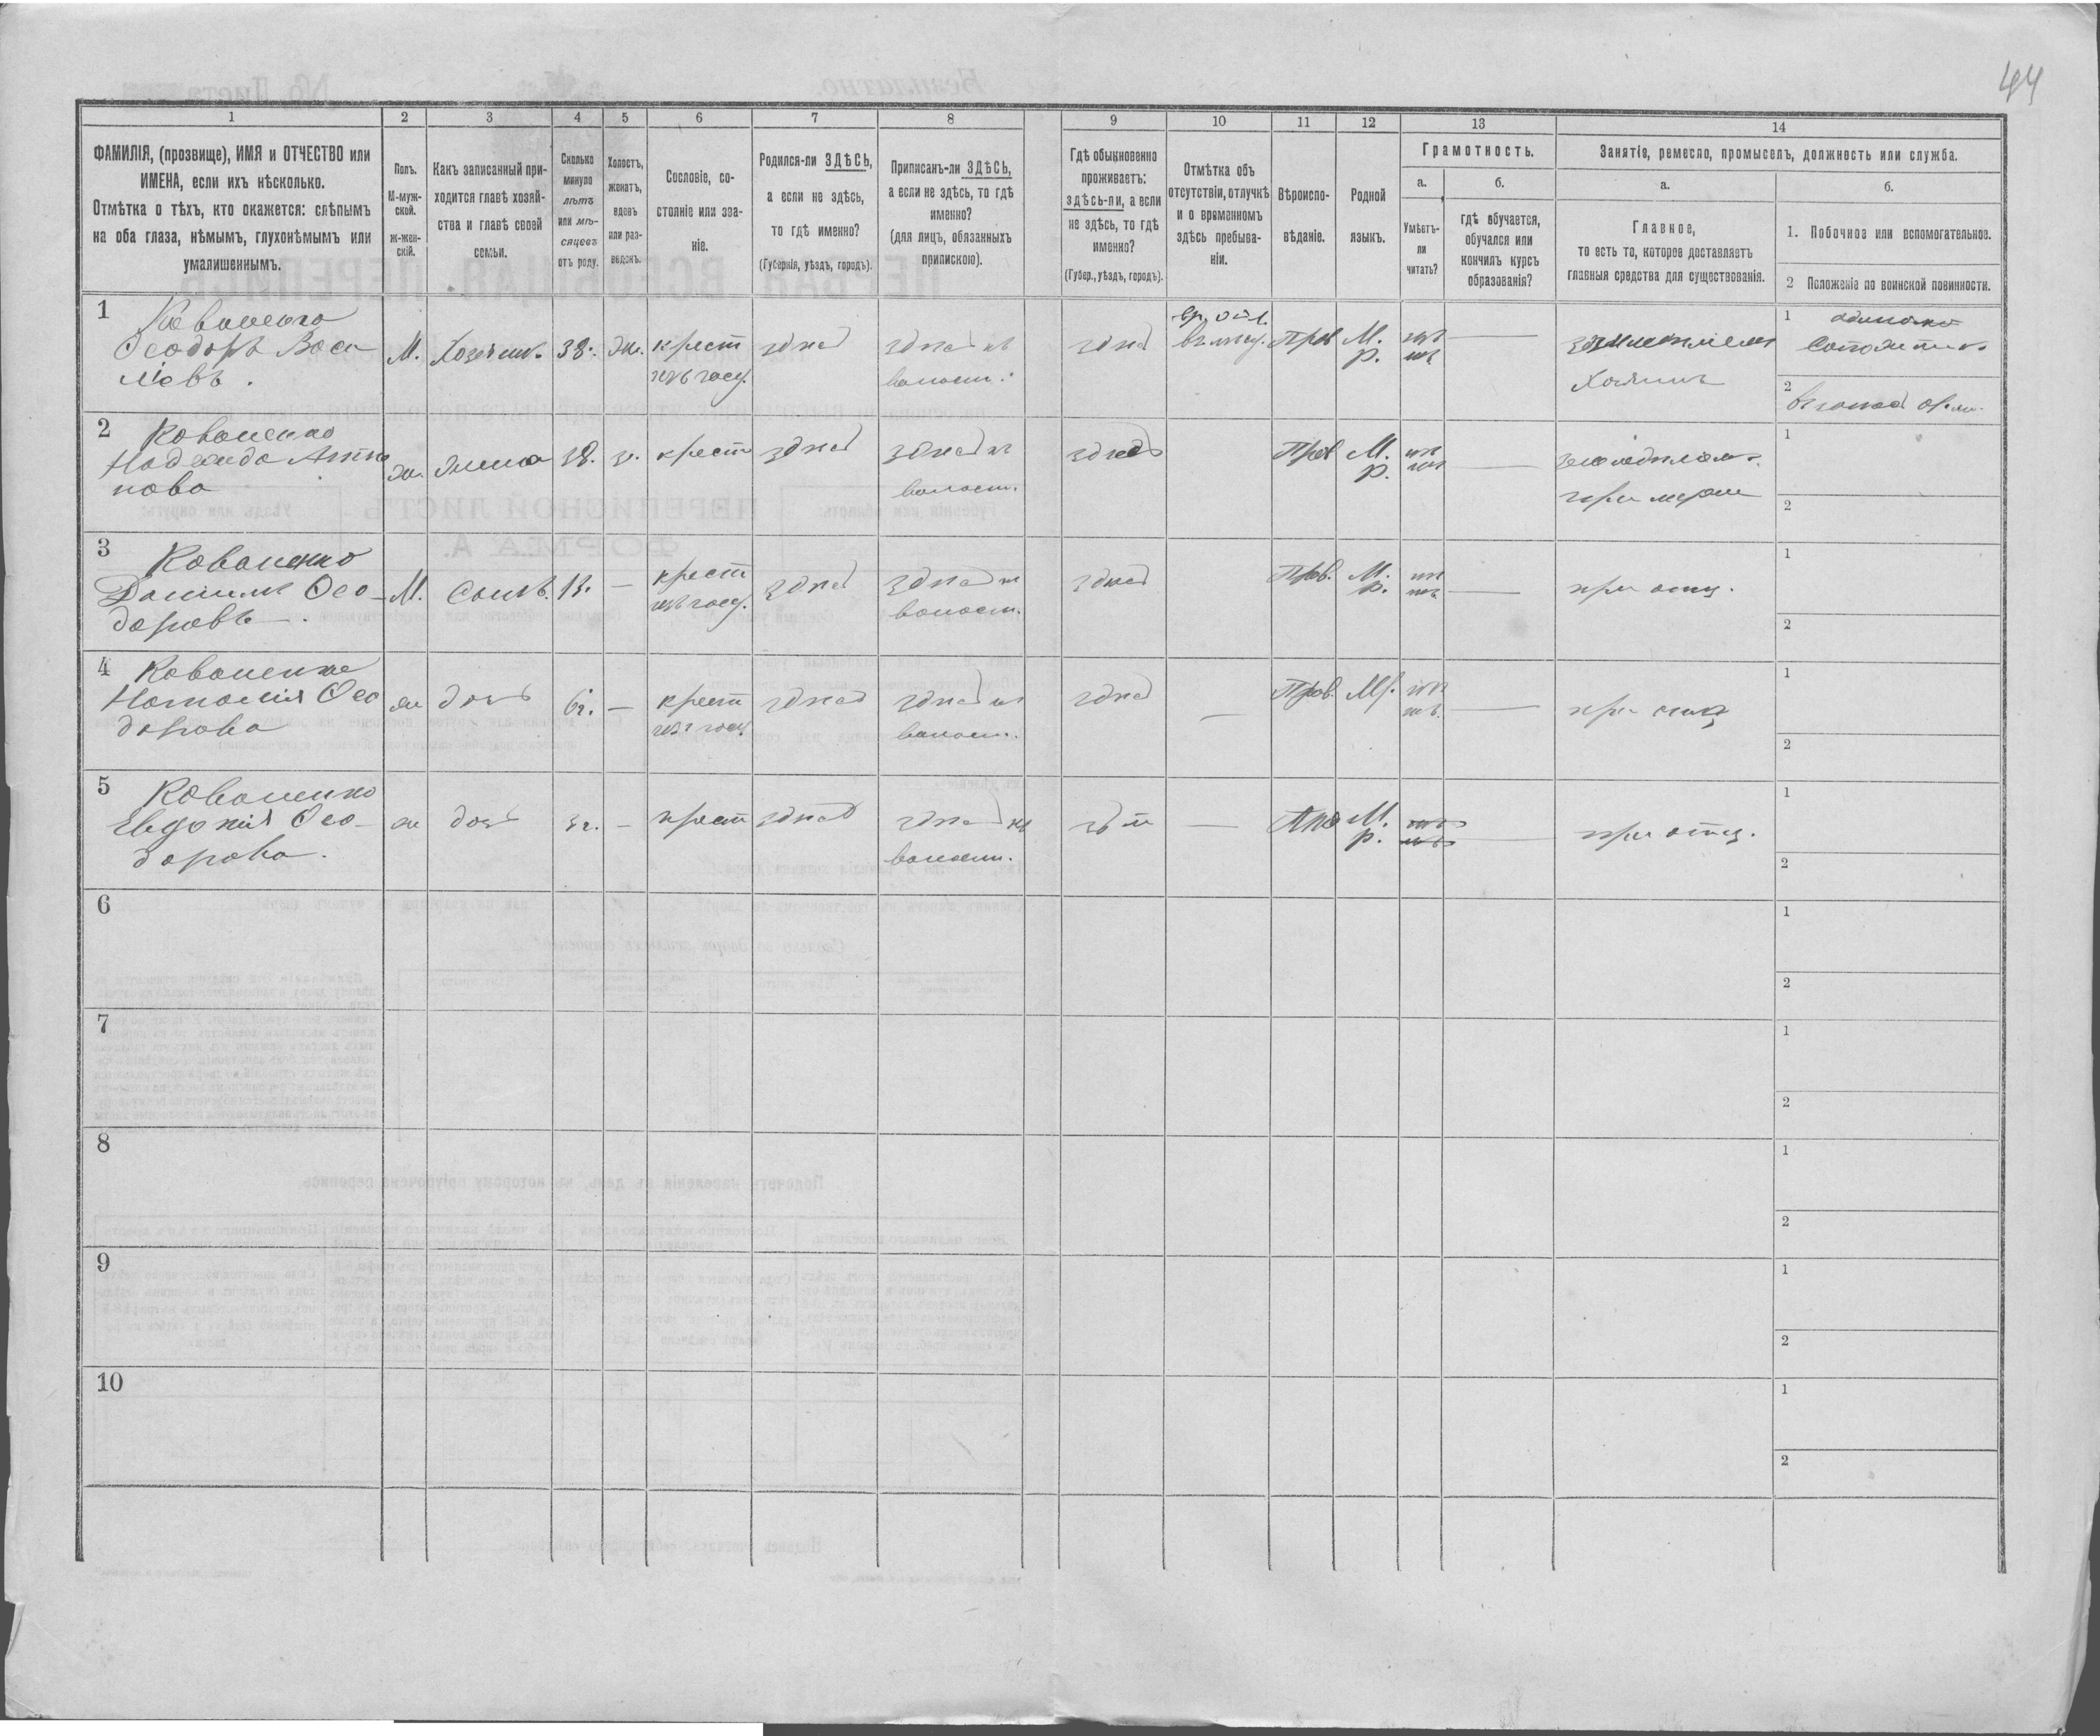 44
1
2
3
4
5
6
7
8
9
10
11
12
13
14
ФАМИЛІЯ, (прозвище), ИМЯ и ОТЧЕСТВО или
ИМЕНА, если ихъ нѣсколько.
Отмѣтка о тѣхъ, кто окажется: слѣпымъ
на оба глаза, нѣмымъ, глухонѣмымъ или
умалишеннымъ.
Полъ.
М-муж-
ской.
ж-жен-
скій.
Какъ записанный при-
ходится главѣ хозяй-
ства и главѣ своей
семьи.
Сколько
минуло
лѣтъ
или мѣ-
сяцевъ
отъ роду.
Холостъ,
женатъ,
вдовъ
или раз-
веденъ.
Сословіе, со-
стояніе или зва-
ніе.
Родился-ли ЗДѢСЬ,
а если не здѣсь,
то гдѣ именно?
(Губернія, уѣздъ, городъ).
Приписанъ-ли ЗДѢСЬ,
а если не здѣсь, то гдѣ
именно?
(для лицъ, обязанныхъ
припискою).
Гдѣ обыкновенно
проживаетъ:
здѣсь-ли, а если
не здѣсь, то гдѣ
именно?
(Губер., уѣздъ, городъ).
Отмѣтка объ
отсутствіи, отлучкѣ
и о временномъ
здѣсь пребыва-
ніи.
Вѣроиспо-
вѣданіе.
Родной
языкъ.
Грамотность.
а.
Умѣетъ-
ли
читать?
б.
гдѣ обучается,
обучался или
кончилъ курсъ
образованія?
Занятіе, ремесло, промыселъ, должность или служба.
а.
Главное,
то есть то, которое доставляетъ
главныя средства для существованія.
б.
1. Побочное или вспомогательное.
2 Положеніе по воинской повинности.
1
Коваленко
Ѳеодоръ Васи
ліевъ.
М.
Хозяинъ
38.
Жн.
крест
изъ госуд.
здѣсь
здѣсь къ
волости.
здѣсь
Прав
М.
Р.
нѣ
тъ
земледѣліемъ
Хозяинъ
1
2
2
Коваленко
Надежда Антно
нова
ж.
Жена
38.
з.
крест
здѣсь
здѣсь къ
волост.
здѣсь
Прав
М.
Р.
нѣ
тъ
земледѣліемъ
при мужѣ
1
2
3
Коваленко
Даніилъ Ѳео-
доровъ.
М.
Сынъ.
13.
—
крест
изъ госуд.
здѣсь
здѣсь къ
волост.
здѣсь
Прав.
М.
Р.
нѣ
тъ
при отц.
1
2
4
Коваленко
Наталія Ѳео
дорова
ж
дочь
6г.
—
крест
изъ госуд
здѣсь
здѣсь къ
волост.
здѣсь
—
Прав.
Мр.
нѣ
тъ.
при отцѣ
1
2
5
Коваленко
Евдокія Ѳео-
дорова.
ж
дочь
3г.
—
крест
здѣсь
здѣсь къ
волост.
—
Прав
М.
р.
нѣ
тъ
при отцѣ.
1
2
6
1
2
7
1
2
8
1
2
9
1
2
10
1
2